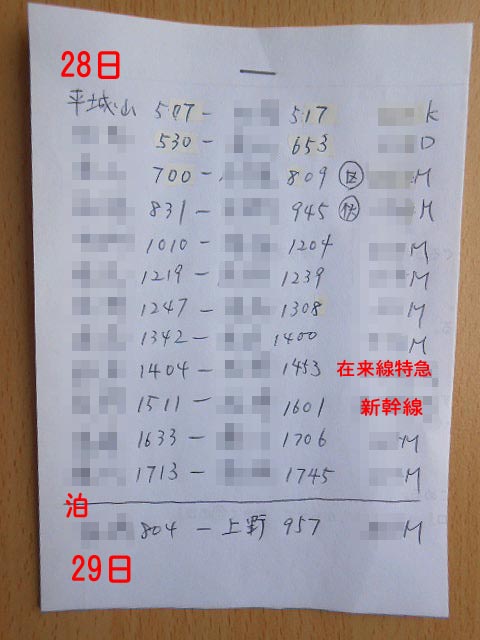 28日
平城山 507- 517 K
530- 653 D
700- 809 区 M
831- 945 快 M
1010- 1204 M
1219- 1239 M
1247- 1308 M
1342- 1400 M
1404- 1453 在来線特急
1511- 1601 新幹線
1633- 1706 M
1713- 1745 M
泊
804 - 上野 957 M
29日